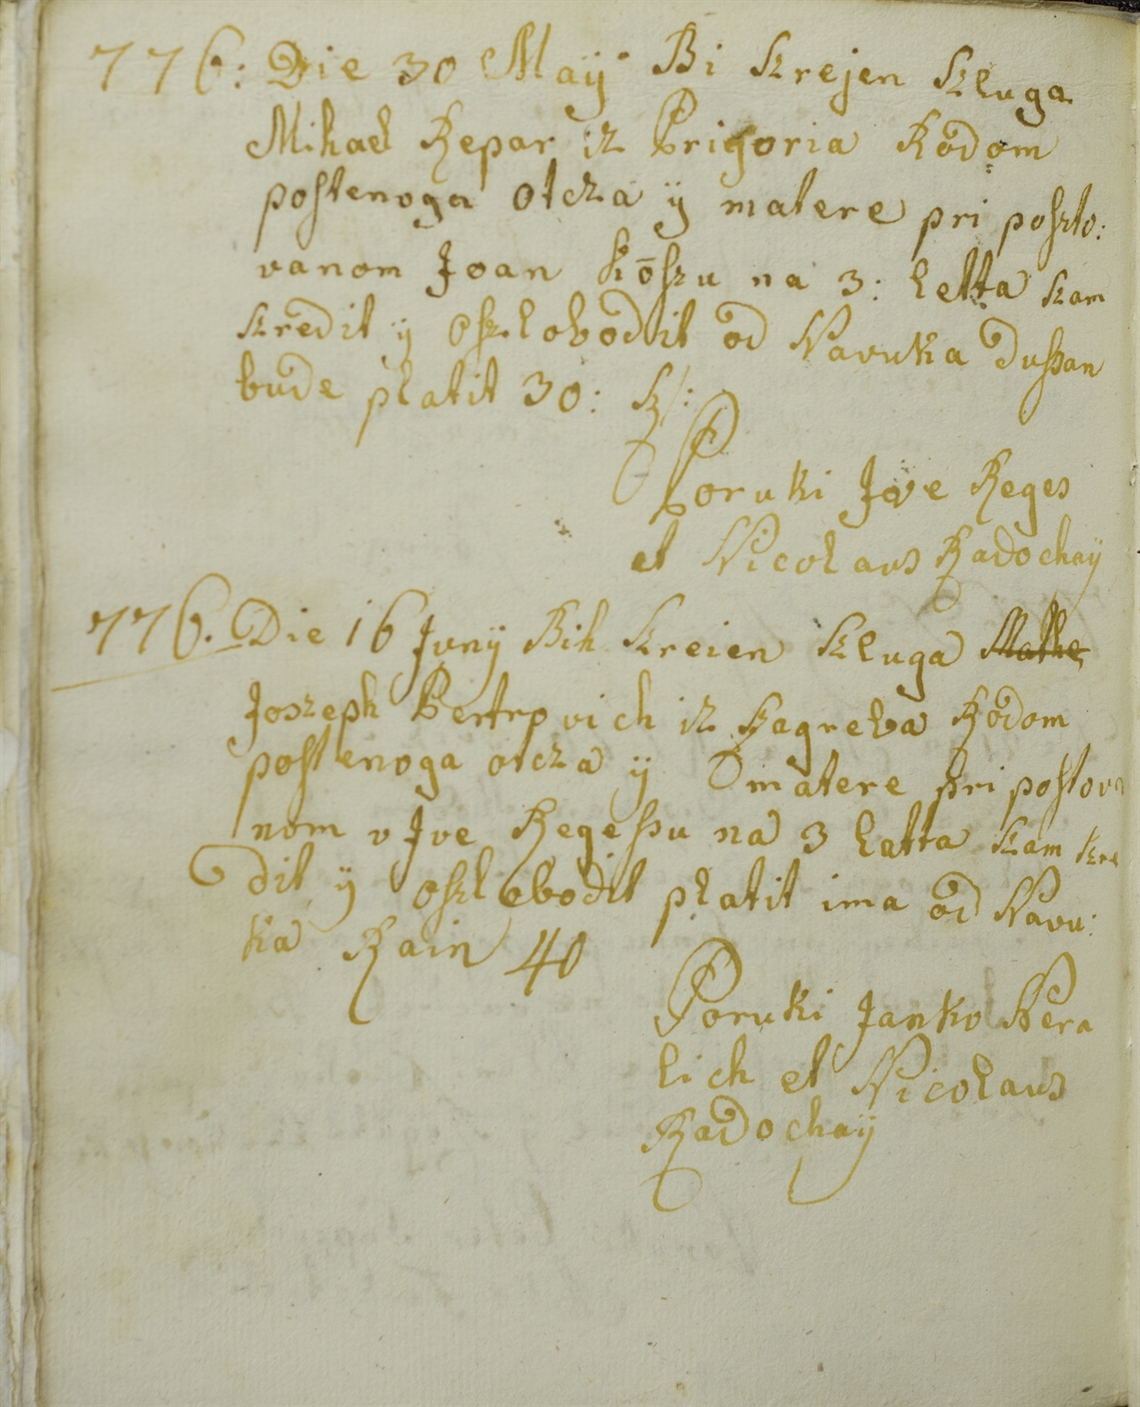 776: Die 30 Maÿ Bi Skrejen Szluga
Mihael Repar iz Prigoria Rodom
postenoga otcza ÿ matere pri poszto:
vanom Joan Koszu na 3: letta szam
szredit ÿ oszlobodit od Navuka Dussan
bude platit 30: Rf:
Poruki Jve Reges
et Nicolaus Radochaÿ
776. Die 16 Junÿ Bih Skreien Szluga
Joszeph Pertrovich iz Zagreba Rodom
postenoga otcza ÿ matere pri postova
nom v Jve Regessu na 3 latta szam szre
dit ÿ oszlobodit platit ima od Navu:
ka Rain 40
Poruki Janko Hera
lich et Nicolaus
Radochaÿ